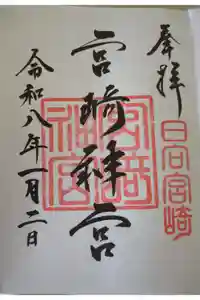 奉拝
宮崎神宮
令和八年一月二日
宮崎神宮